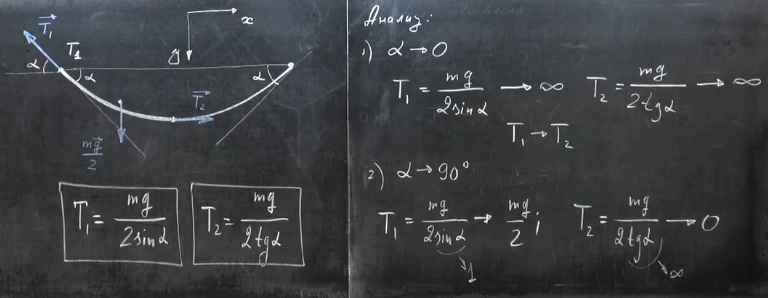 T⃗₁
T₁
x
y
α
α
α
T⃗₂
mg⃗/2
T₁ = mg/2sinα
T₂ = mg/2tgα
Анализ:
1) α → 0
T₁ = mg/2sinα → ∞ T₂ = mg/2tgα → ∞
T₁ → T₂
2) α → 90°
T₁ = mg/2sinα → mg/2 ; T₂ = mg/2tgα → 0
1
∞